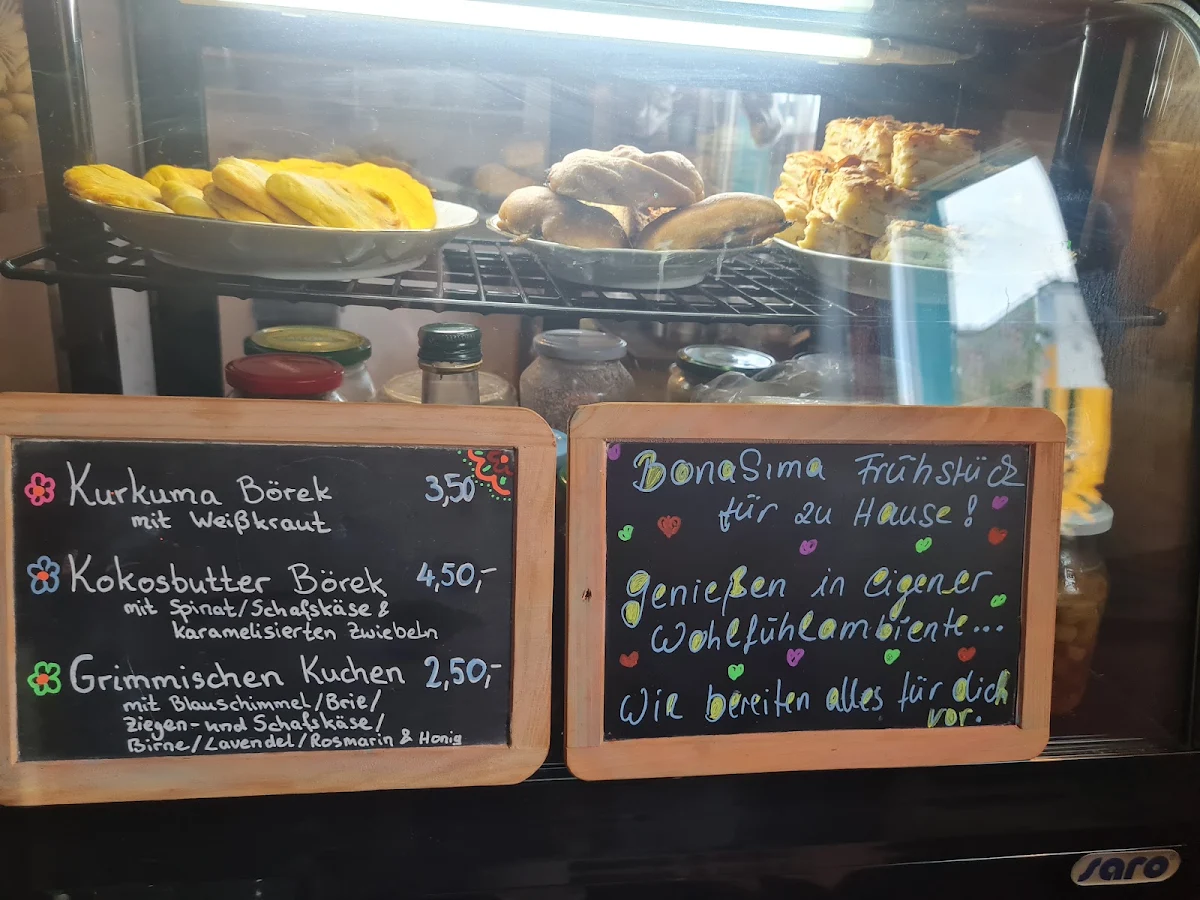 Kurkuma Börek 3,50
mit Weißkraut
Kokosbutter Börek 4,50,-
mit Spinat/Schafskäse &
karamelisierten Zwiebeln
Grimmischen Kuchen 2,50,-
mit Blauschimmel/Brie/
Ziegen- und Schafskäse/
Birne/Lavendel/Rosmarin & Honig
BonaSima Frühstück
für zu Hause!
genießen in eigener
Wohlfühlambiente...
Wir bereiten alles für dich
vor.
saro